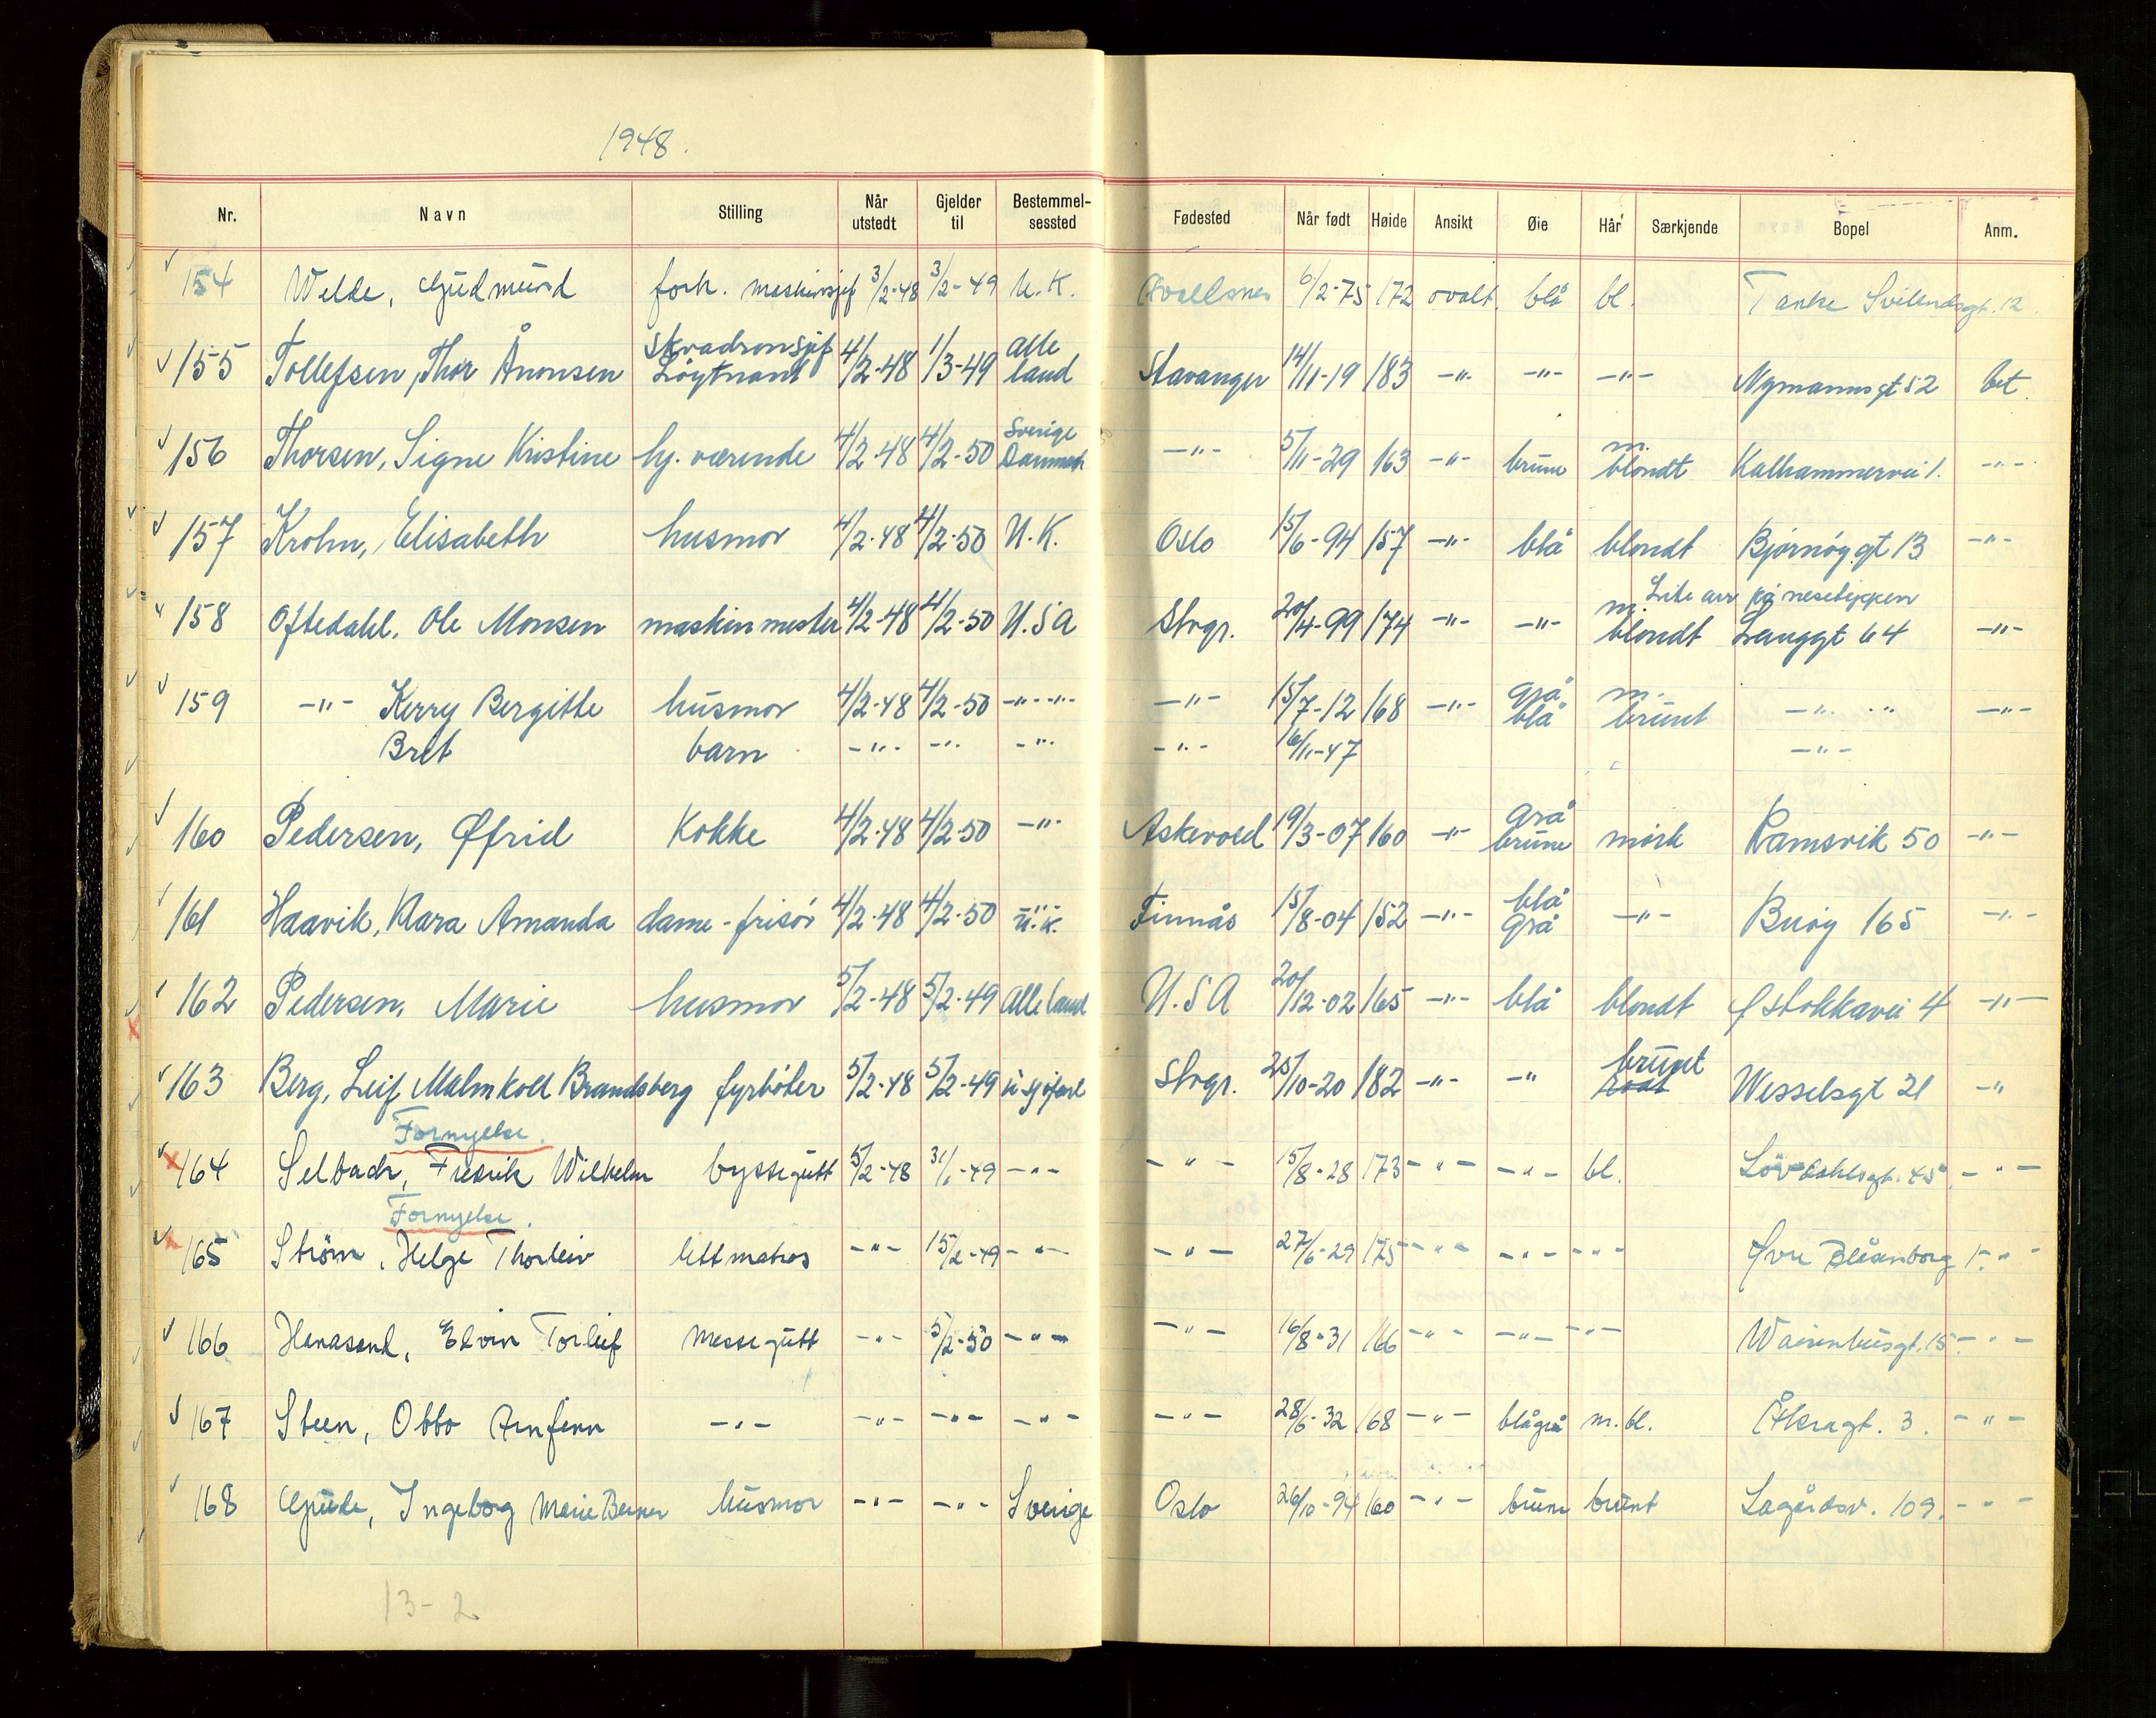 1948.
Nr. Navn Stilling Når utstedt Gjelder til Bestemmel-sessted Fødested Når født Høide Ansikt Øie Hår Særkjende Bopel Anm.
154 Welde, Gudmund forh. maskinsjef 3/2-48 3/2-49 U.K. 6/2-75 172 ovalt. blå bl. Tanke Svilandsgt. 12
155 Tollefsen, Thor Ånonsen Skvadronsjef Løytnant 4/2-48 1/3-49 alle land Stavanger 14/11-19 183 -"- -"- -"- Nymannsgt 52 bet.
156 Thorsen, Signe Kristine hj. værende 4/2-48 4/2-50 Sverige Danmark -"- 5/11-29 163 -"- brune m. blondt Kalhammervei 1. -"-
157 Krohn, Elisabeth husmor 4/2-48 4/2-50 U.K. Oslo 15/6-94 157 -"- blå blondt Bjørnøygt 13 -"-
158 Oftedahl, Ole Monsen maskinmester 4/2-48 4/2-50 U.S.A Stvgr. 20/4-99 174 -"- -"- m. blondt Lite arr på nesetippen Langgt 64 -"-
159 -"- Kerry Bergitte husmor 4/2-48 4/2-50 -"- -"- -"- 15/7-12 168 -"- grå blå m. brunt -"- -"- -"-
Bret barn -"- -"- -"- -"- 16/11-47 -"-
160 Pedersen, Øfrid Kokke 4/2-48 4/2-50 -"- Askevold 19/3-07 160 -"- grå brune mørk Ramsvik 50 -"-
161 Haavik, Klara Amanda dame-frisør 4/2-48 4/2-50 -"- U.K. Finnås 15/8-04 152 -"- blå grå -"- Buøy 165 -"-
162 Pedersen, Marie husmor 5/2-48 5/2-49 Alle land U.S.A 20/12-02 165 -"- blå blondt Ø Stokkavei 4 -"-
163 Berg, Leif Malmkoll Brandsberg fyrbøter 5/2-48 5/2-49 u sjøfart Stvgr. 25/10-20 182 -"- -"- brunet Wesselsgt 21 -"-
Fornyelse.
164 Selbach, Fredrik Wilhelm byssegutt 5/2-48 31/1-49 -"- -"- 15/8-28 173 -"- -"- bl. Løvdahlsgt. 45 -"-
Fornyelse.
165 Strøm, Helge Thorleiv lettmatros -"- 15/2-49 -"- -"- 27/6-29 175 -"- -"- -"- Øvre Blåsenborg 1. -"-
166 Hanasand, Elvin Torleif messegutt -"- 5/2-50 -"- -"- 16/8-31 166 -"- -"- -"- Waisenhusgt. 15 -"-
167 Steen, Otto Arnfinn -"- -"- -"- -"- -"- 28/6-32 168 -"- blågrå m. bl. Åkragt. 3. -"-
168 Gude, Ingeborg Marie Berner husmor -"- -"- Sverige Oslo 26/10-94 160 -"- brune brunt Lagårdsv. 109. -"-
13-2